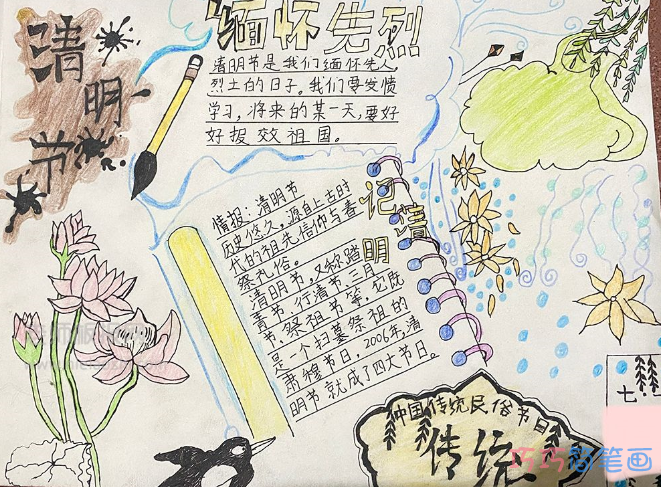 清明节
缅怀先烈
清明节是我们缅怀先人
烈士的日子。我们要发愤
学习，将来的某一天，要好
好报效祖国。
记清明
情报：清明节
历史悠久，源自上古时
代的祖先信仰与春
祭礼俗。
清明节，又称踏
青节、行清节、三月
节、祭祖节等，它既
是一个扫墓祭祖的
肃穆节日，2006年，清
明节就成了四大节日。
种国传统民俗节日
传统
七
巧巧简笔画